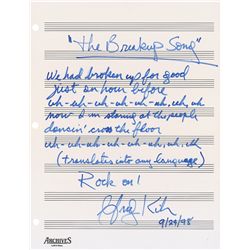 "The Breakup Song"
We had broken up for good
just an hour before
uh-ah-uh-uh-uh-uh,uh,uh
now I'm staring at the people
dancin' 'cross the floor
uh-ah-uh-uh-uh-uh,uh,uh
(translates into any language)
Rock on!
Greg Kihn
9/24/98
ARCHIVES